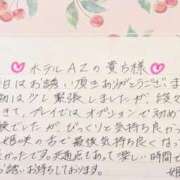 ホテルAZの貴ち様
日はお誘い頂きありがとうございま
初はど緊張しましたが、段々
きて、プレイではオプションで初め
験でしたが、びっくりと気持ち良か
姫咲の舌で最後気持ち良く
かったです。共通点もあって楽しい時間で
お待ちしております。
姫